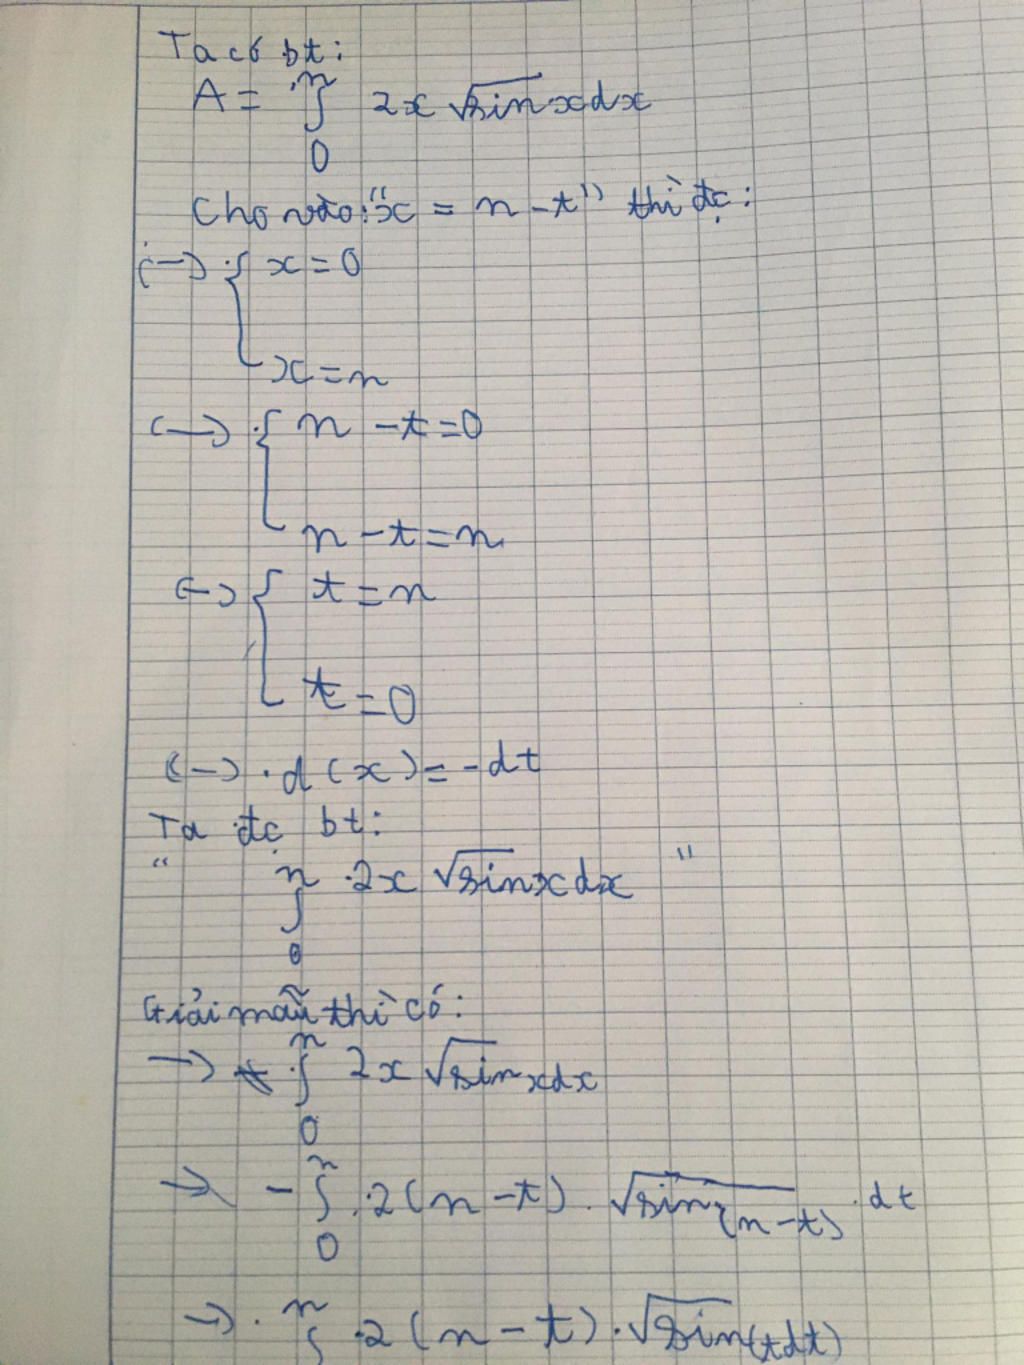 Ta có bt:
A = ∫₀ⁿ 2x √sin x dx
Cho vào: "x = n - t" thì đc:
(→) { x = 0
x = n
(→) { n - t = 0
n - t = n
(→) { t = n
t = 0
(→) . d(x) = -dt
Ta đc bt:
" ∫₀ⁿ .2x √sin x dx "
Giải mẫu thì có:
→ ∫₀ⁿ 2x √sin x dx
→ - ∫₀ⁿ .2(n - t) . √sin(n - t) . dt
→ . ∫ⁿ .2(n - t) . √sin(t dt)